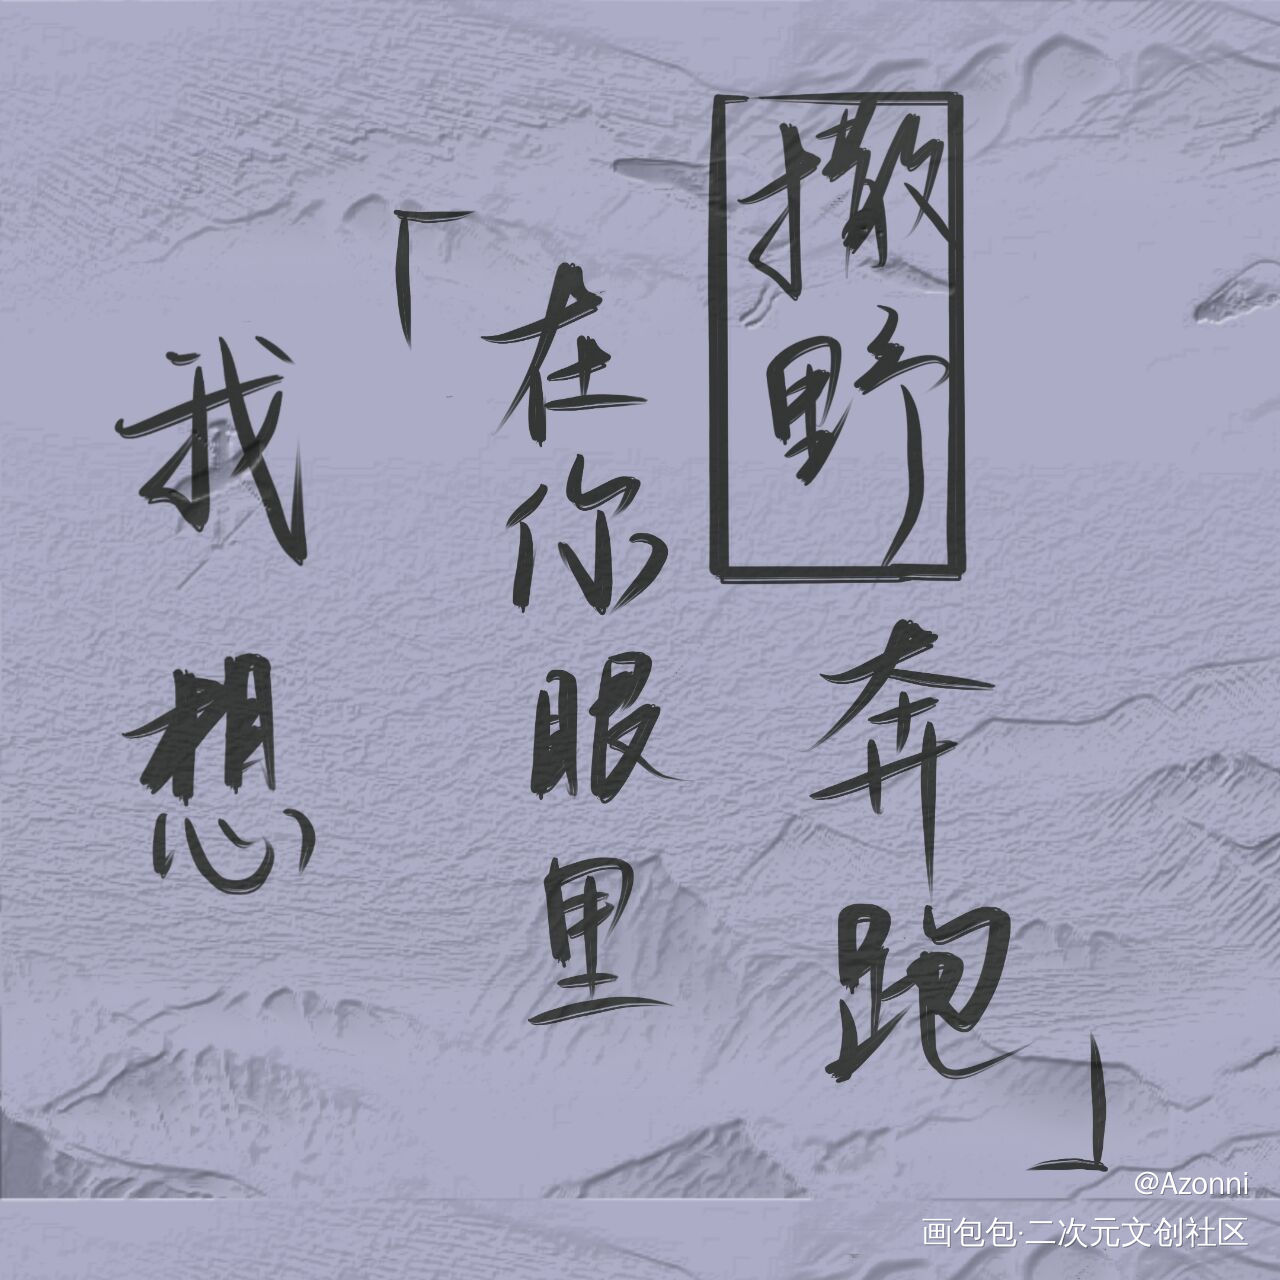 我想
「在你眼里
撒野奔跑」
@Azonni
画包包·二次元文创社区